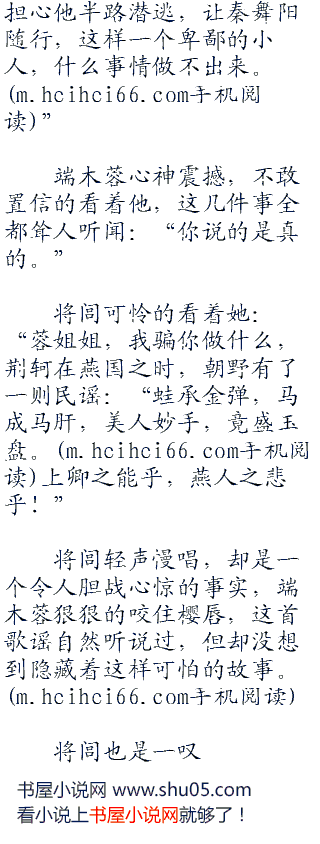 担心他半路潜逃，让秦舞阳
随行，这样一个卑鄙的小
人，什么事情做不出来。
(m.hcihci66.com手机阅
读)”
端木蓉心神震撼，不敢
置信的看着他，这几件事全
都耸人听闻：“你说的是真
的。”
将闾可怜的看着她：
“蓉姐姐，我骗你做什么，
荆轲在燕国之时，朝野有了
一则民谣：“蛙承金弹，马
成马肝，美人妙手，竟盛玉
盘。(m.hcihci66.com手机阅
读)上卿之能乎，燕人之悲
乎！”
将闾轻声漫唱，却是一
个令人胆战心惊的事实，端
木蓉狠狠的咬住樱唇，这首
歌谣自然听说过，但却没想
到隐藏着这样可怕的故事。
(m.hcihci66.com手机阅读)
将闾也是一叹
书屋小说网 www.shu05.com
看小说上书屋小说网就够了！